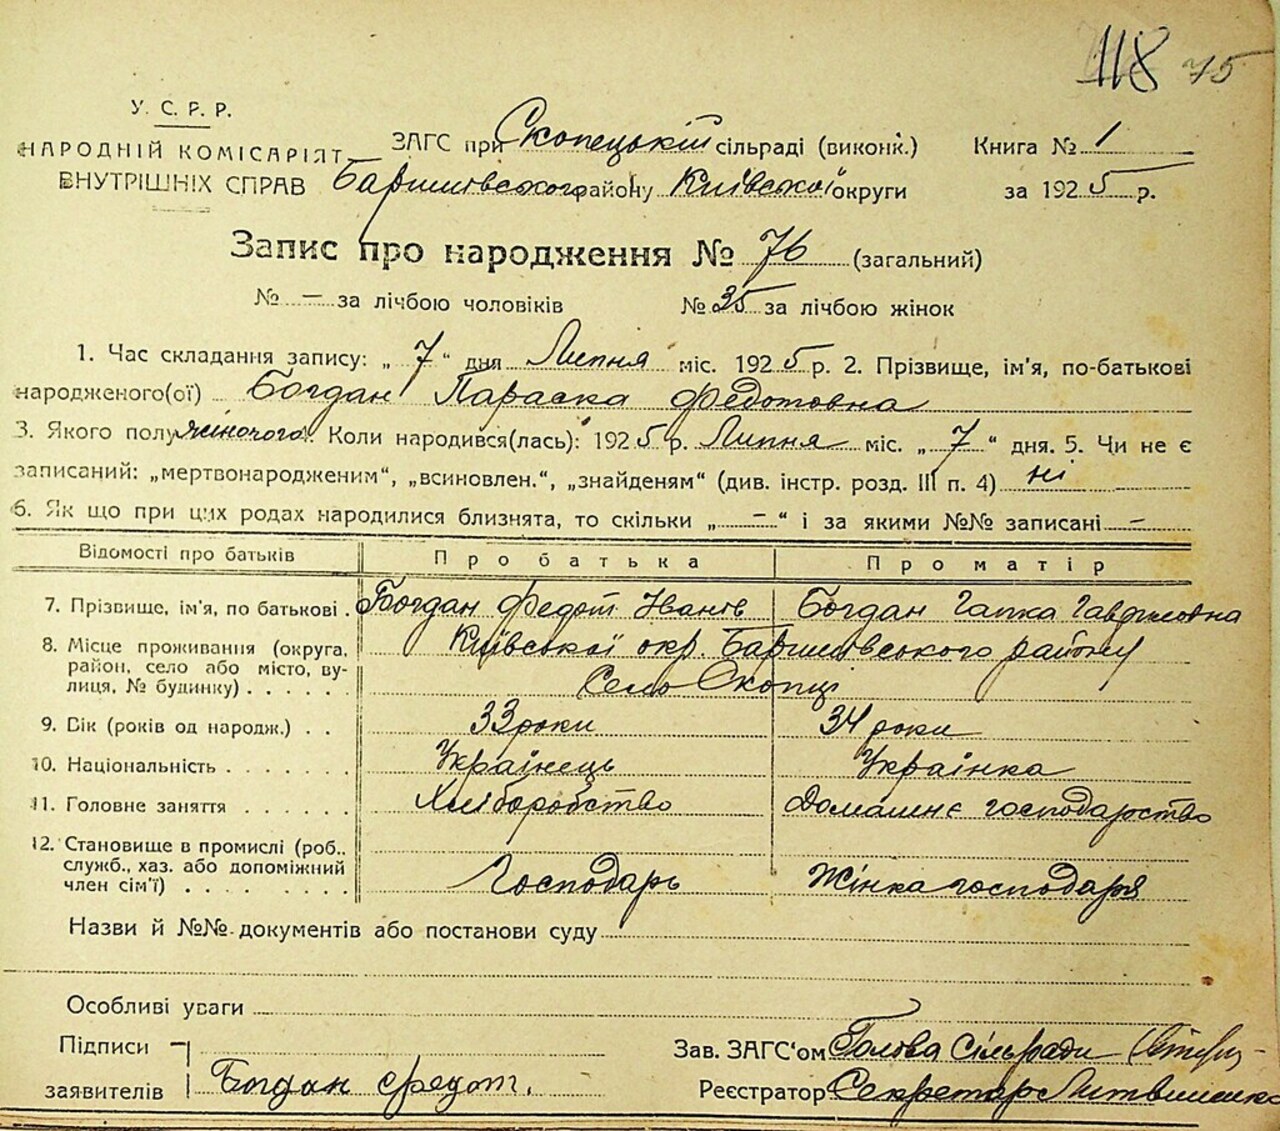 118 75
У. С. Р. Р.
НАРОДНІЙ КОМІСАРІЯТ
ВНУТРІШНІХ СПРАВ
ЗАГС при Скопецькій сільраді (виконк.) Книга № 1
Баришівського району Київської округи за 1925 р.
Запис про народження № 76 (загальний)
№ — за лічбою чоловіків № 35 за лічбою жінок
1. Час складання запису: „ 7 “ дня Липня міс. 1925 р. 2. Прізвище, ім'я, по-батькові
народженого(ої) Богдан Параска Федотовна
3. Якого полу жіночого 4. Коли народився(лась): 1925 р. Липня міс. „ 7 “ дня. 5. Чи не є
записаний: „мертвонародженим“, „всиновлен.“, „знайденям“ (див. інстр. розд. III п. 4) ні
6. Як що при цих родах народилися близнята, то скільки „ — “ і за якими №№ записані —
Відомості про батьків Про батька Про матір
7. Прізвище, ім'я, по батькові . Богдан Федот Іванів Богдан Гапка Гавриловна
8. Місце проживання (округа, район, село або місто, вулиця, № будинку) . . . . . . Київської окр. Баришівського району
Село Скопці
9. Вік (років од народж.) . . 33 роки 34 роки
10. Національність . . . . . . . Українець Українка
11. Головне заняття . . . . . . Хліборобство Домашнє господарство
12. Становище в промислі (роб., служб., хаз. або допоміжний член сім'ї) . . . . . . . . Господарь Жінка господаря
Назви й №№ документів або постанови суду
Особливі уваги
Підписи заявителів Богдан Федот.
Зав. ЗАГС'ом Голова Сільради
Реєстратор Секретар Литвиненко